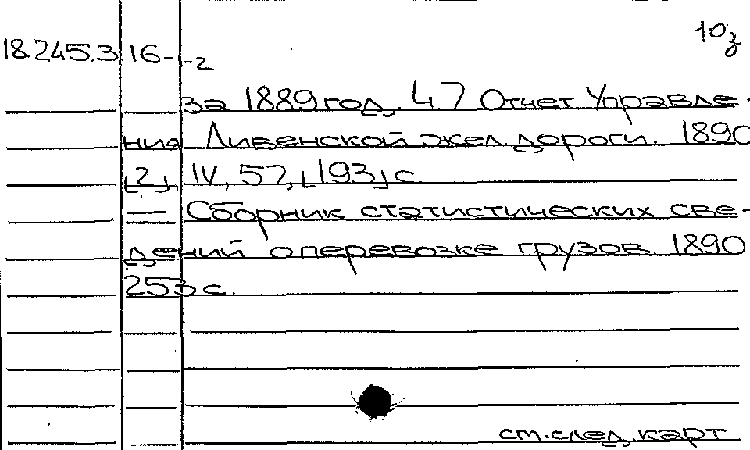 10з
18.245.3 16-2
за 1889 год. 47 Отчет Управле-
ния Ливенской жел. дороги. 1890
[2], IV, 57, [193] с
— Сборник статистических све-
дений о перевозке грузов 1890
253 с.
см. след. карт